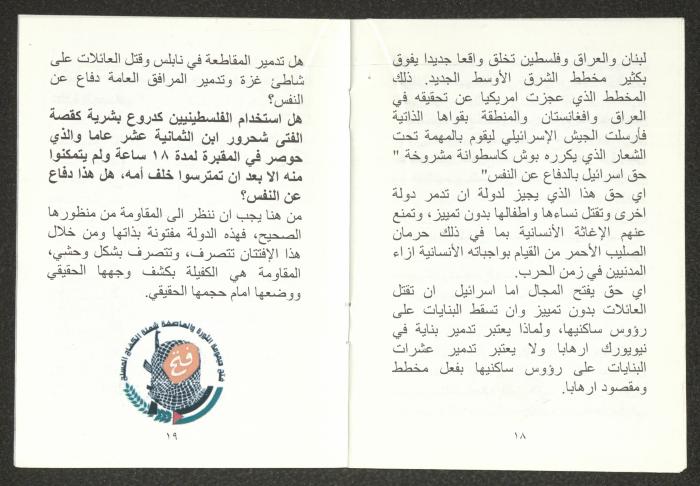 لبنان والعراق وفلسطين تخلق واقعا جديدا يفوق
بكثير مخطط الشرق الأوسط الجديد. ذلك
المخطط الذي عجزت امريكيا عن تحقيقه في
العراق وافغانستان والمنطقة بقواها الذاتية
فأرسلت الجيش الإسرائيلي ليقوم بالمهمة تحت
الشعار الذي يكرره بوش كاسطوانة مشروخة "
حق اسرائيل بالدفاع عن النفس"
اي حق هذا الذي يجيز لدولة ان تدمر دولة
اخرى وتقتل نساءها واطفالها بدون تمييز، وتمنع
عنهم الإغاثة الأنسانية بما في ذلك حرمان
الصليب الأحمر من القيام بواجباته الأنسانية ازاء
المدنيين في زمن الحرب.
اي حق يفتح المجال اما اسرائيل ان تقتل
العائلات بدون تمييز وان تسقط البنايات على
رؤوس ساكنيها، ولماذا يعتبر تدمير بناية في
نيويورك ارهابا ولا يعتبر تدمير عشرات
البنايات على رؤوس ساكنيها بفعل مخطط
ومقصود ارهابا.
١٨
هل تدمير المقاطعة في نابلس وقتل العائلات على
شاطئ غزة وتدمير المرافق العامة دفاع عن
النفس؟
هل استخدام الفلسطينيين كدروع بشرية كقصة
الفتى شحرور ابن الثمانية عشر عاما والذي
حوصر في المقبرة لمدة ١٨ ساعة ولم يتمكنوا
منه الا بعد ان تمترسوا خلف أمه، هل هذا دفاع
عن النفس؟
من هنا يجب ان ننظر الى المقاومة من منظورها
الصحيح، فهذه الدولة مفتونة بذاتها ومن خلال
هذا الإفتتان تتصرف، وتتصرف بشكل وحشي،
المقاومة هي الكفيلة بكشف وجهها الحقيقي
ووضعها امام حجمها الحقيقي.
فتح ديمومة الثورة والعاصفة شعلة الكفاح المسلح
فتح
١٩